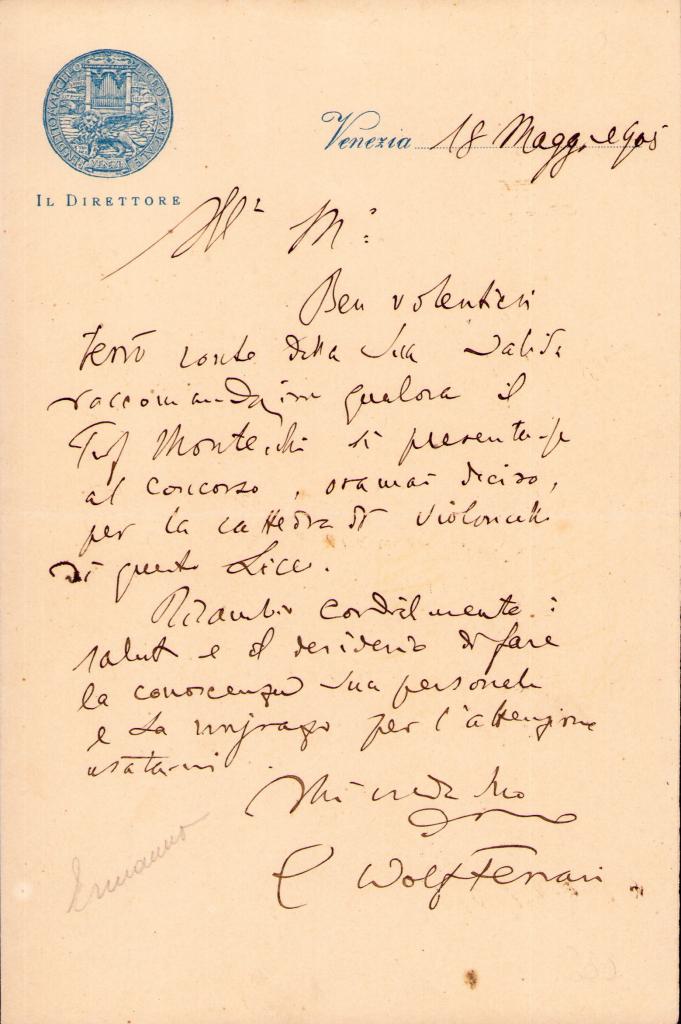 BENEDETTO MARCELLO LICEO MUSICALE
VENEZIA
IL DIRETTORE
Venezia 18 Magg. 1905
Ill.r M.o:
Ben volentieri
terrò conto della Sua valida
raccomandazione qualora il
Prof Montecchi si presentasse
al concorso, oramai deciso,
per la cattedra di violoncello
di questo Liceo.
Ricambio cordialmente i
saluti e il desiderio di fare
la conoscenza Sua personale
e La ringrazio per l'attenzione
usatami
Mi creda Suo
E Wolf Ferrari
Ermanno